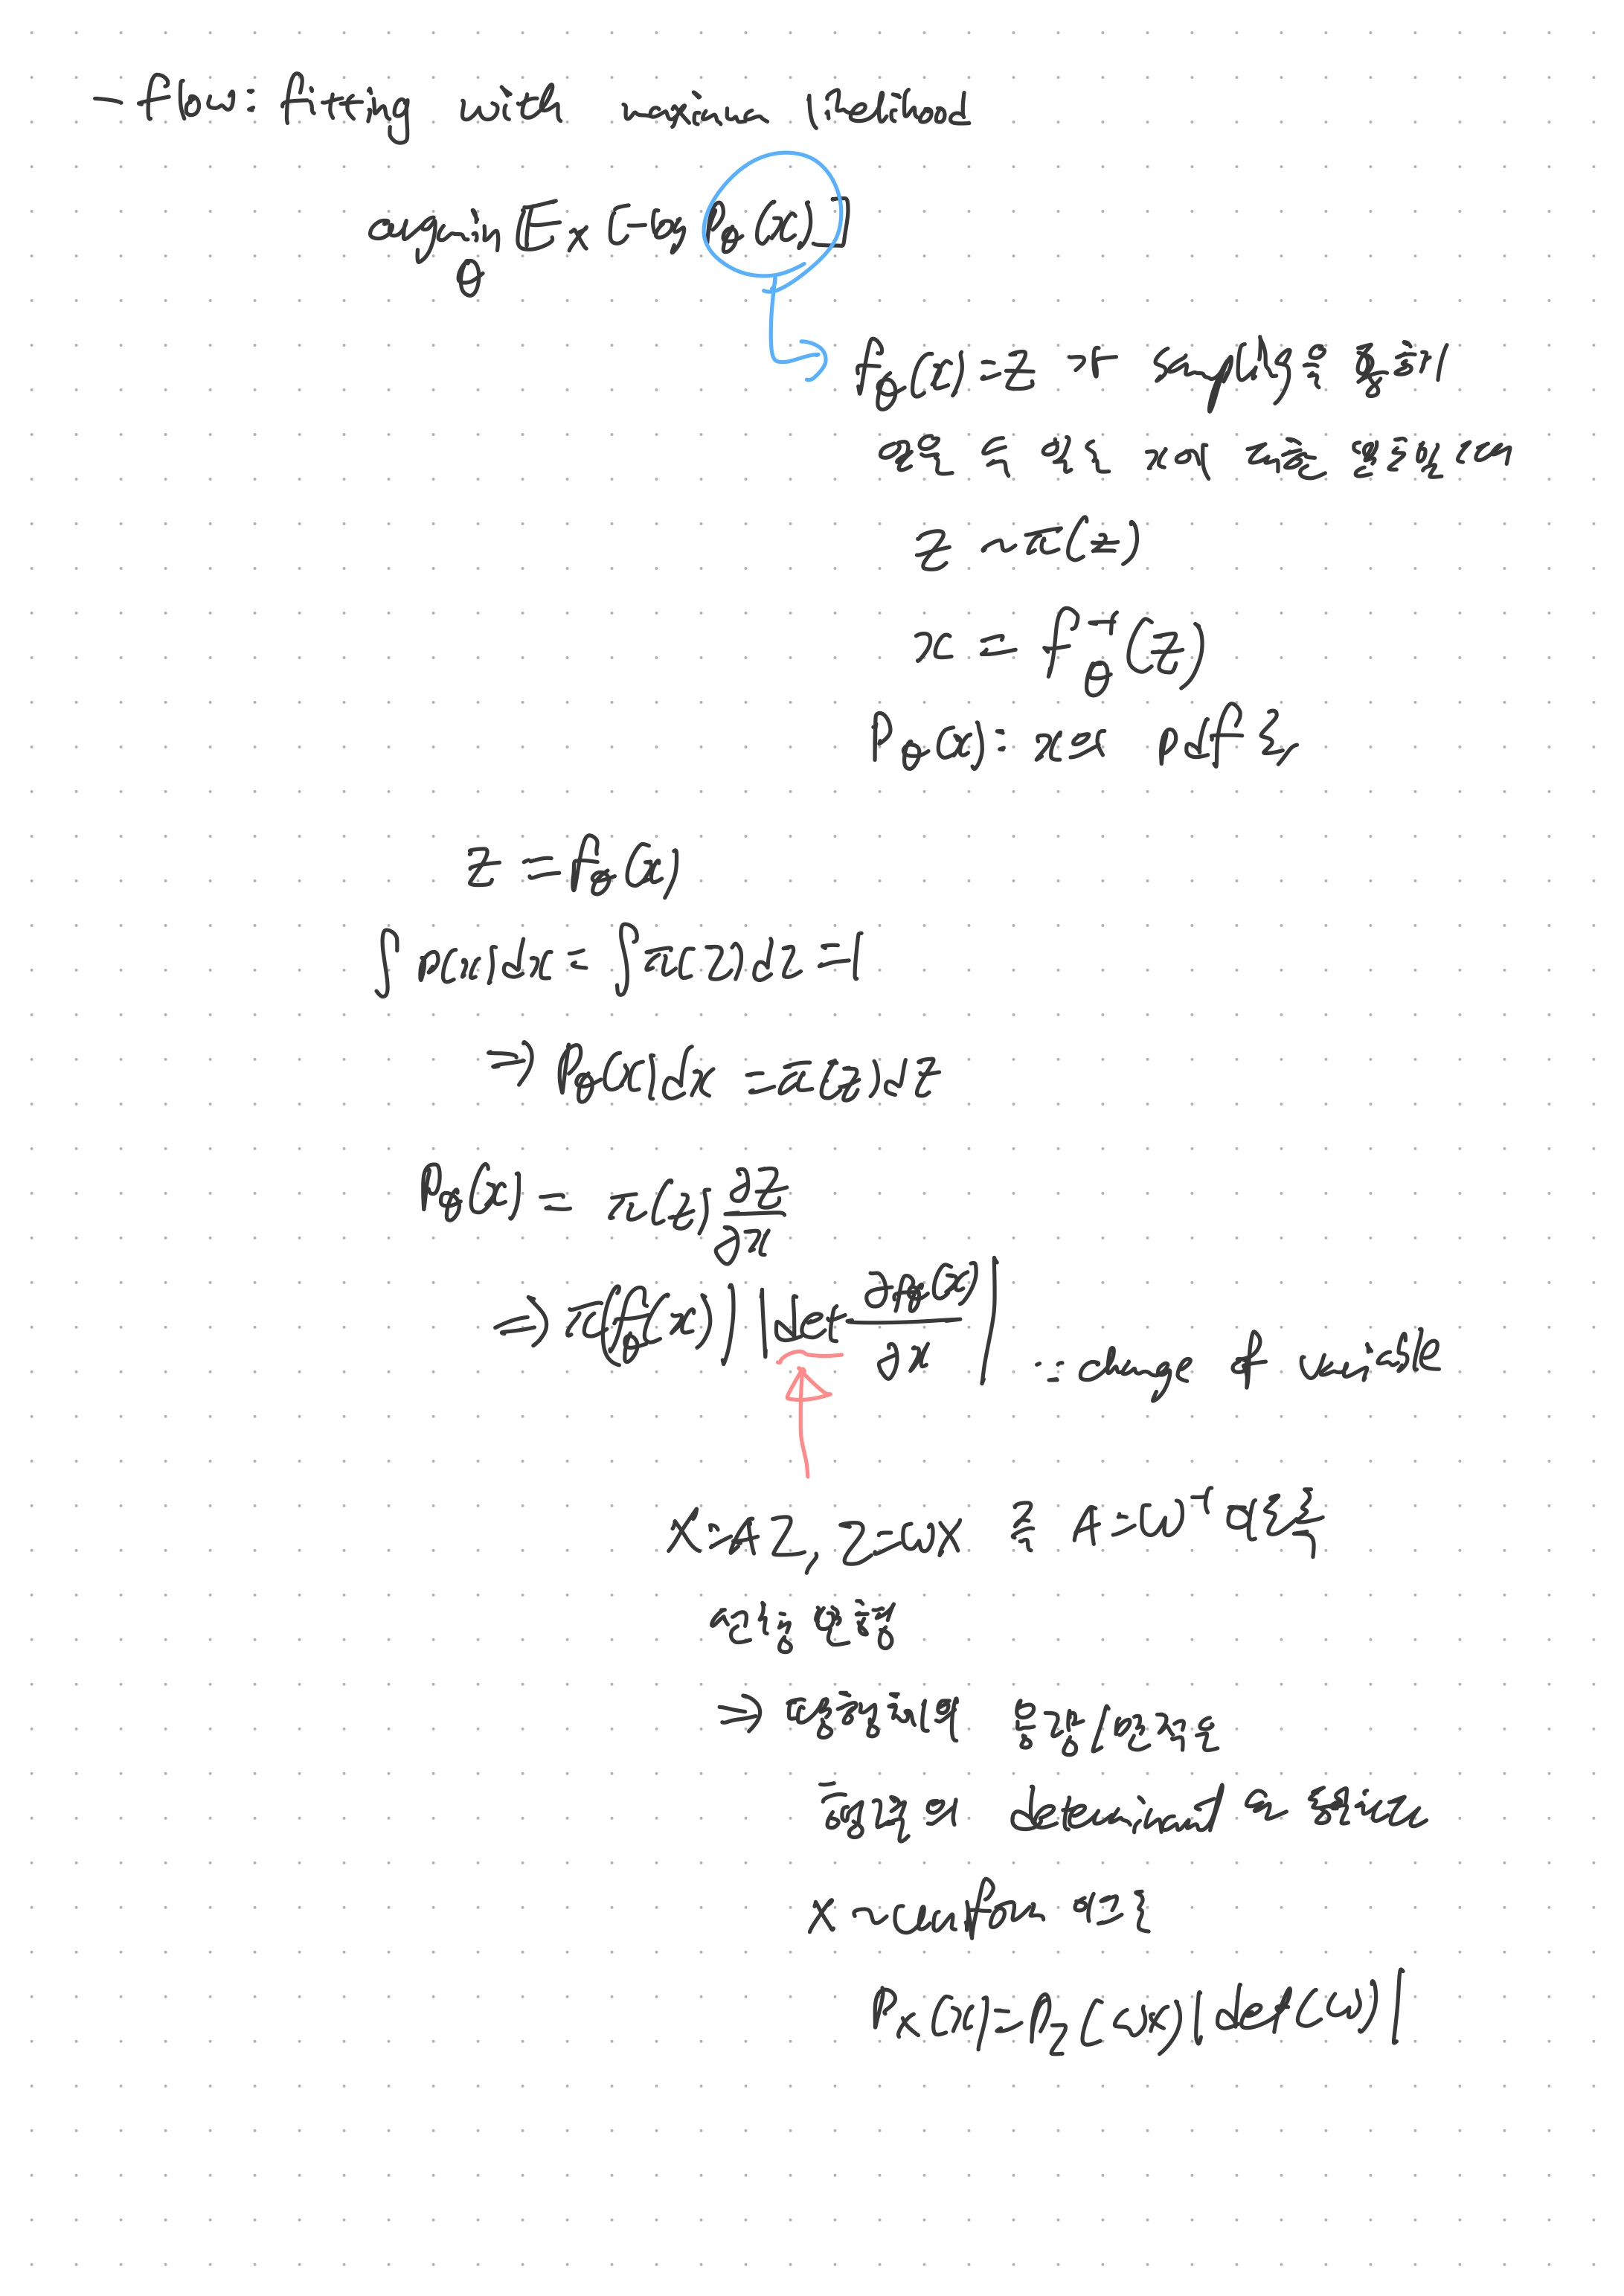 - flow: fitting with maximum likelihood
argmin_θ E_x [-log P_θ(x)]
f_θ(x) = z 가 sampling을 통해
얻을 수 있는 x에 대응 관계일 때
z ~ π(z)
x = f_θ^{-1}(z)
P_θ(x): x의 pdf
z = f_θ(x)
∫ p(x)dx = ∫ π(z)dz = 1
⇒ P_θ(x)dx = π(z)dz
P_θ(x) = π(z) ∂z/∂x
⇒ π(f_θ(x)) |det ∂f_θ(x)/∂x| : change of variable
X = AZ, Z = WX 즉 A = W^{-1}
선형 변환
⇒ 평행체의 용량/면적은
행렬의 determinant
X ~ uniform 이므로
P_X(x) = P_Z(Wx)|det(W)|